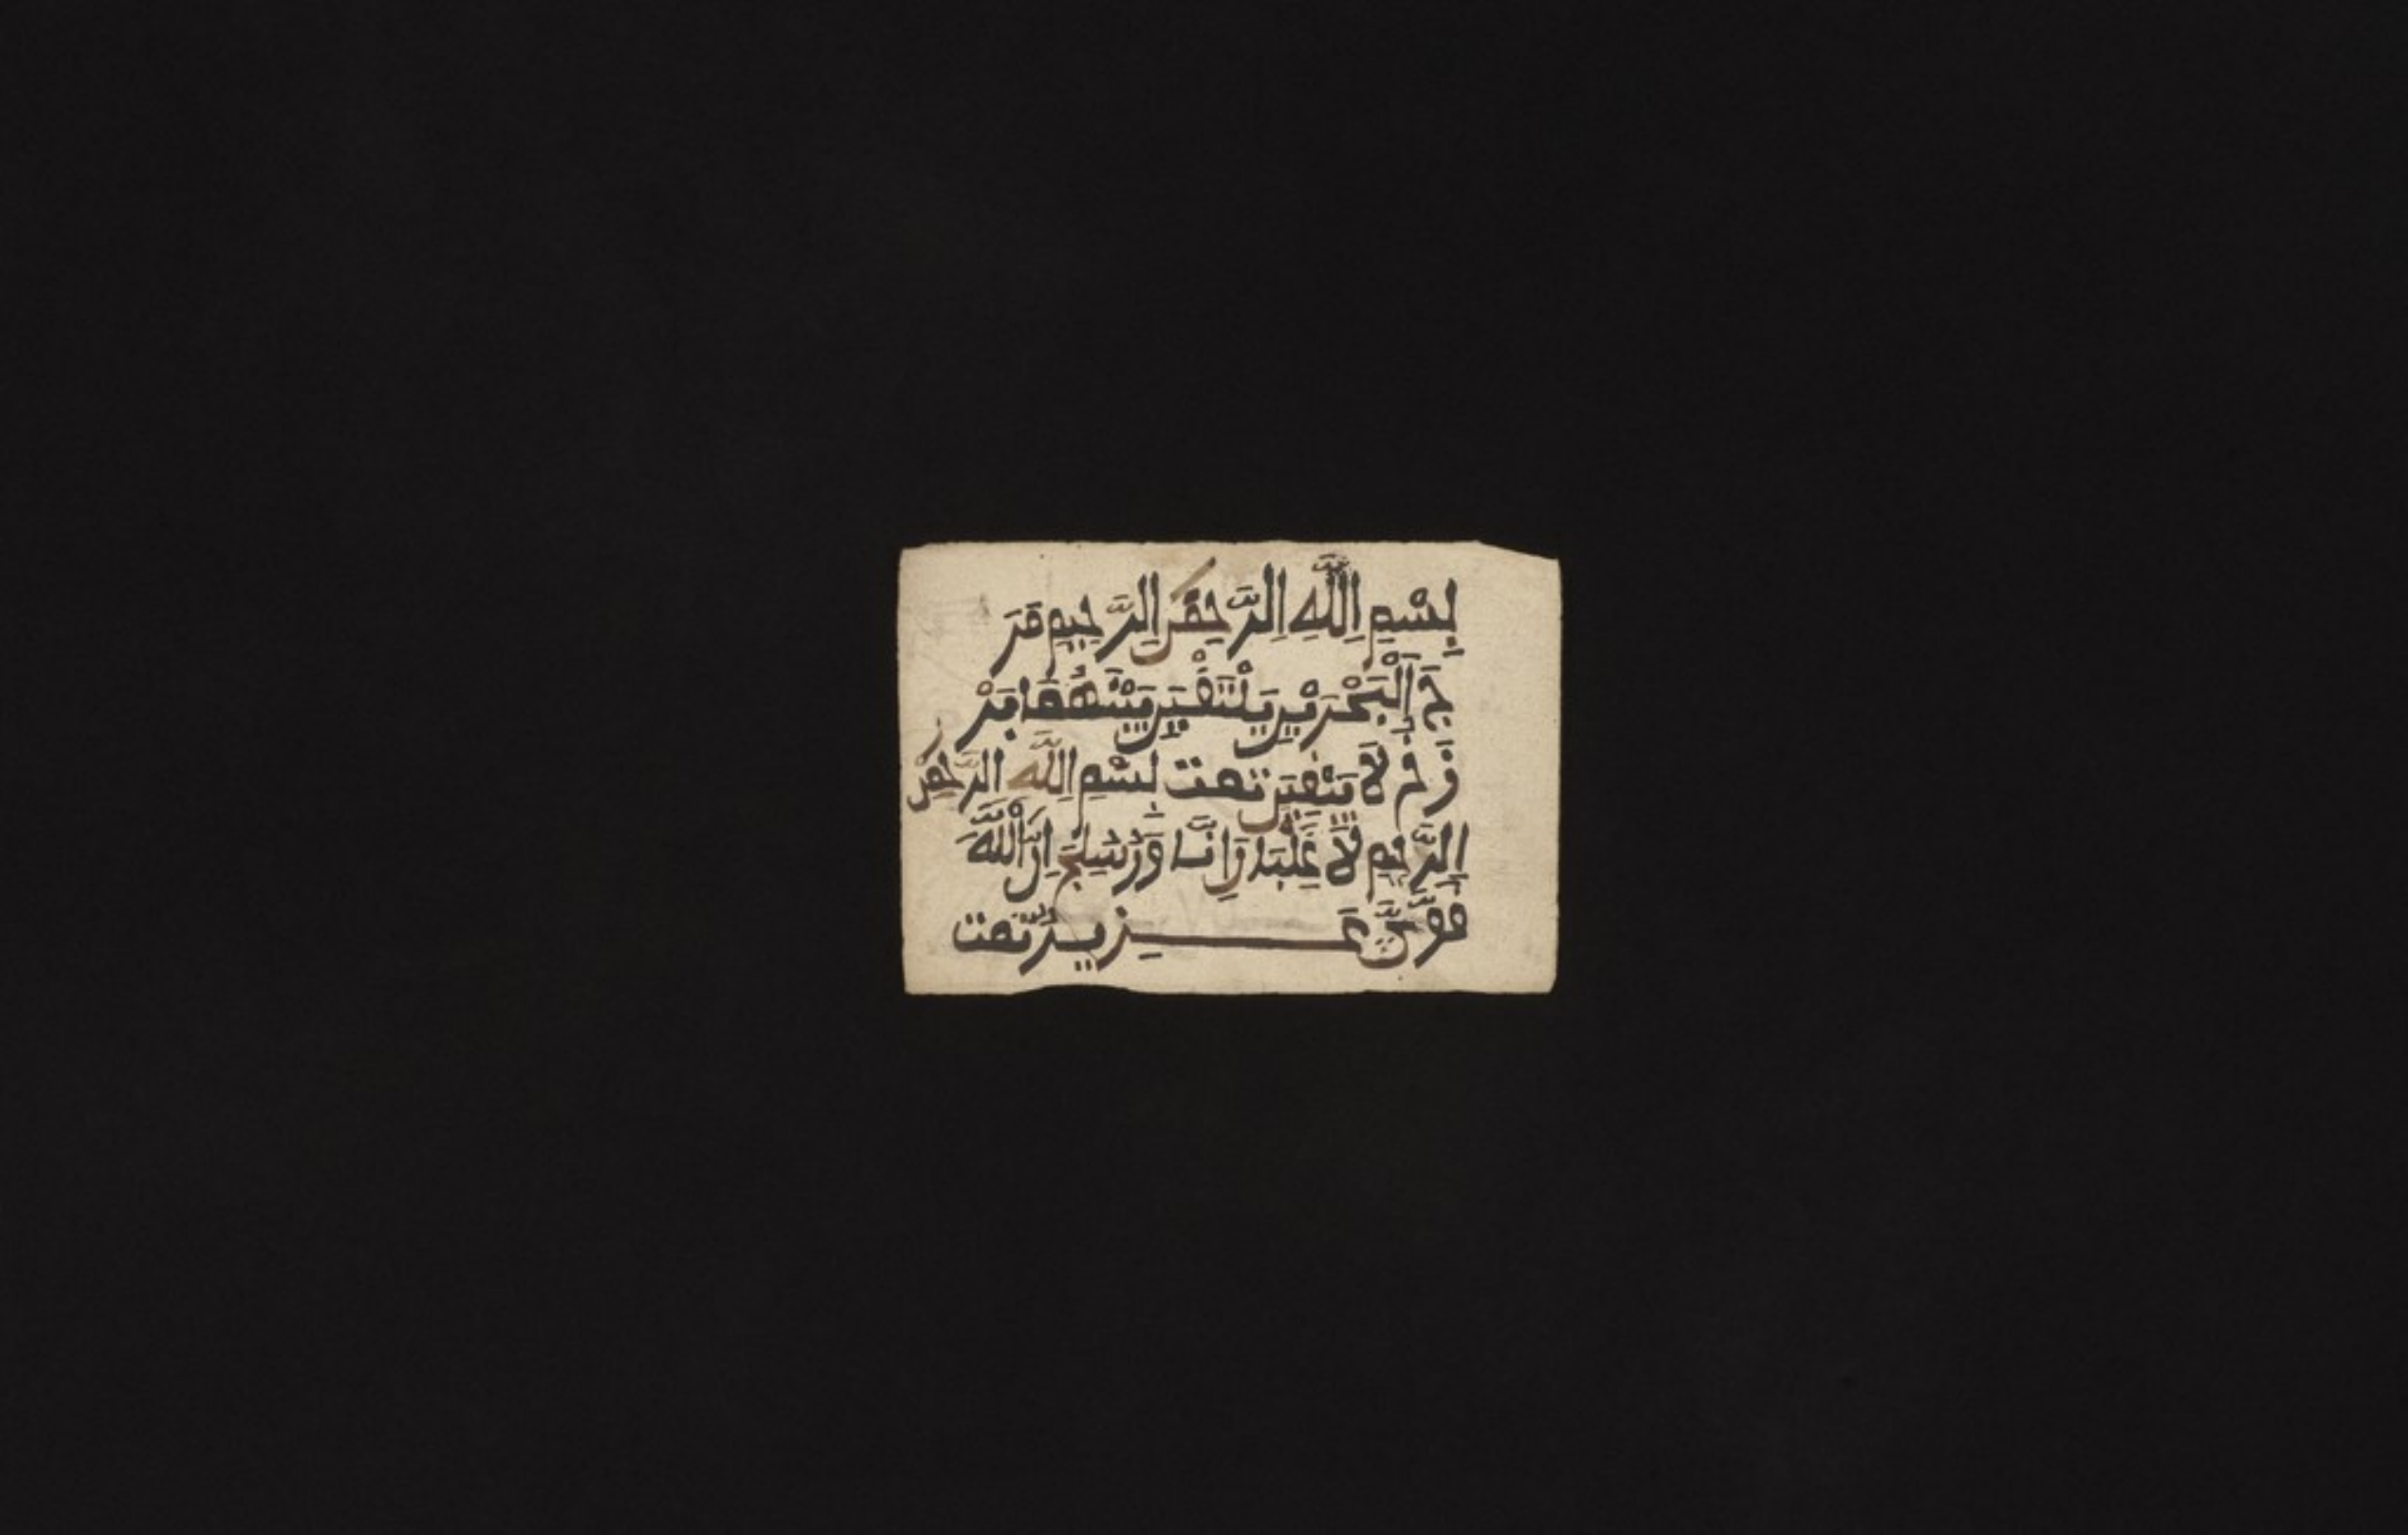 بِسْمِ اِللَّهِ اِلرَّحِمَنِ اِلرَّحِيمِ مَرَ
جَ اَلْبَحْرَيْنِ يَلْتَقِيَنِ بَيْنَهُمَا بَرْ
زَخٌ لَا يَبْغِيَنِ تمت بِسْمِ اِللَّهِ الرَّحِمَنْ
اِلرَّحِيمِ لَأَغْلِبَنَ اَنَا وَرُسُلِي اِنَّ اَللَّهَ
قَوِيٌّ عَزِيزٌ تمت